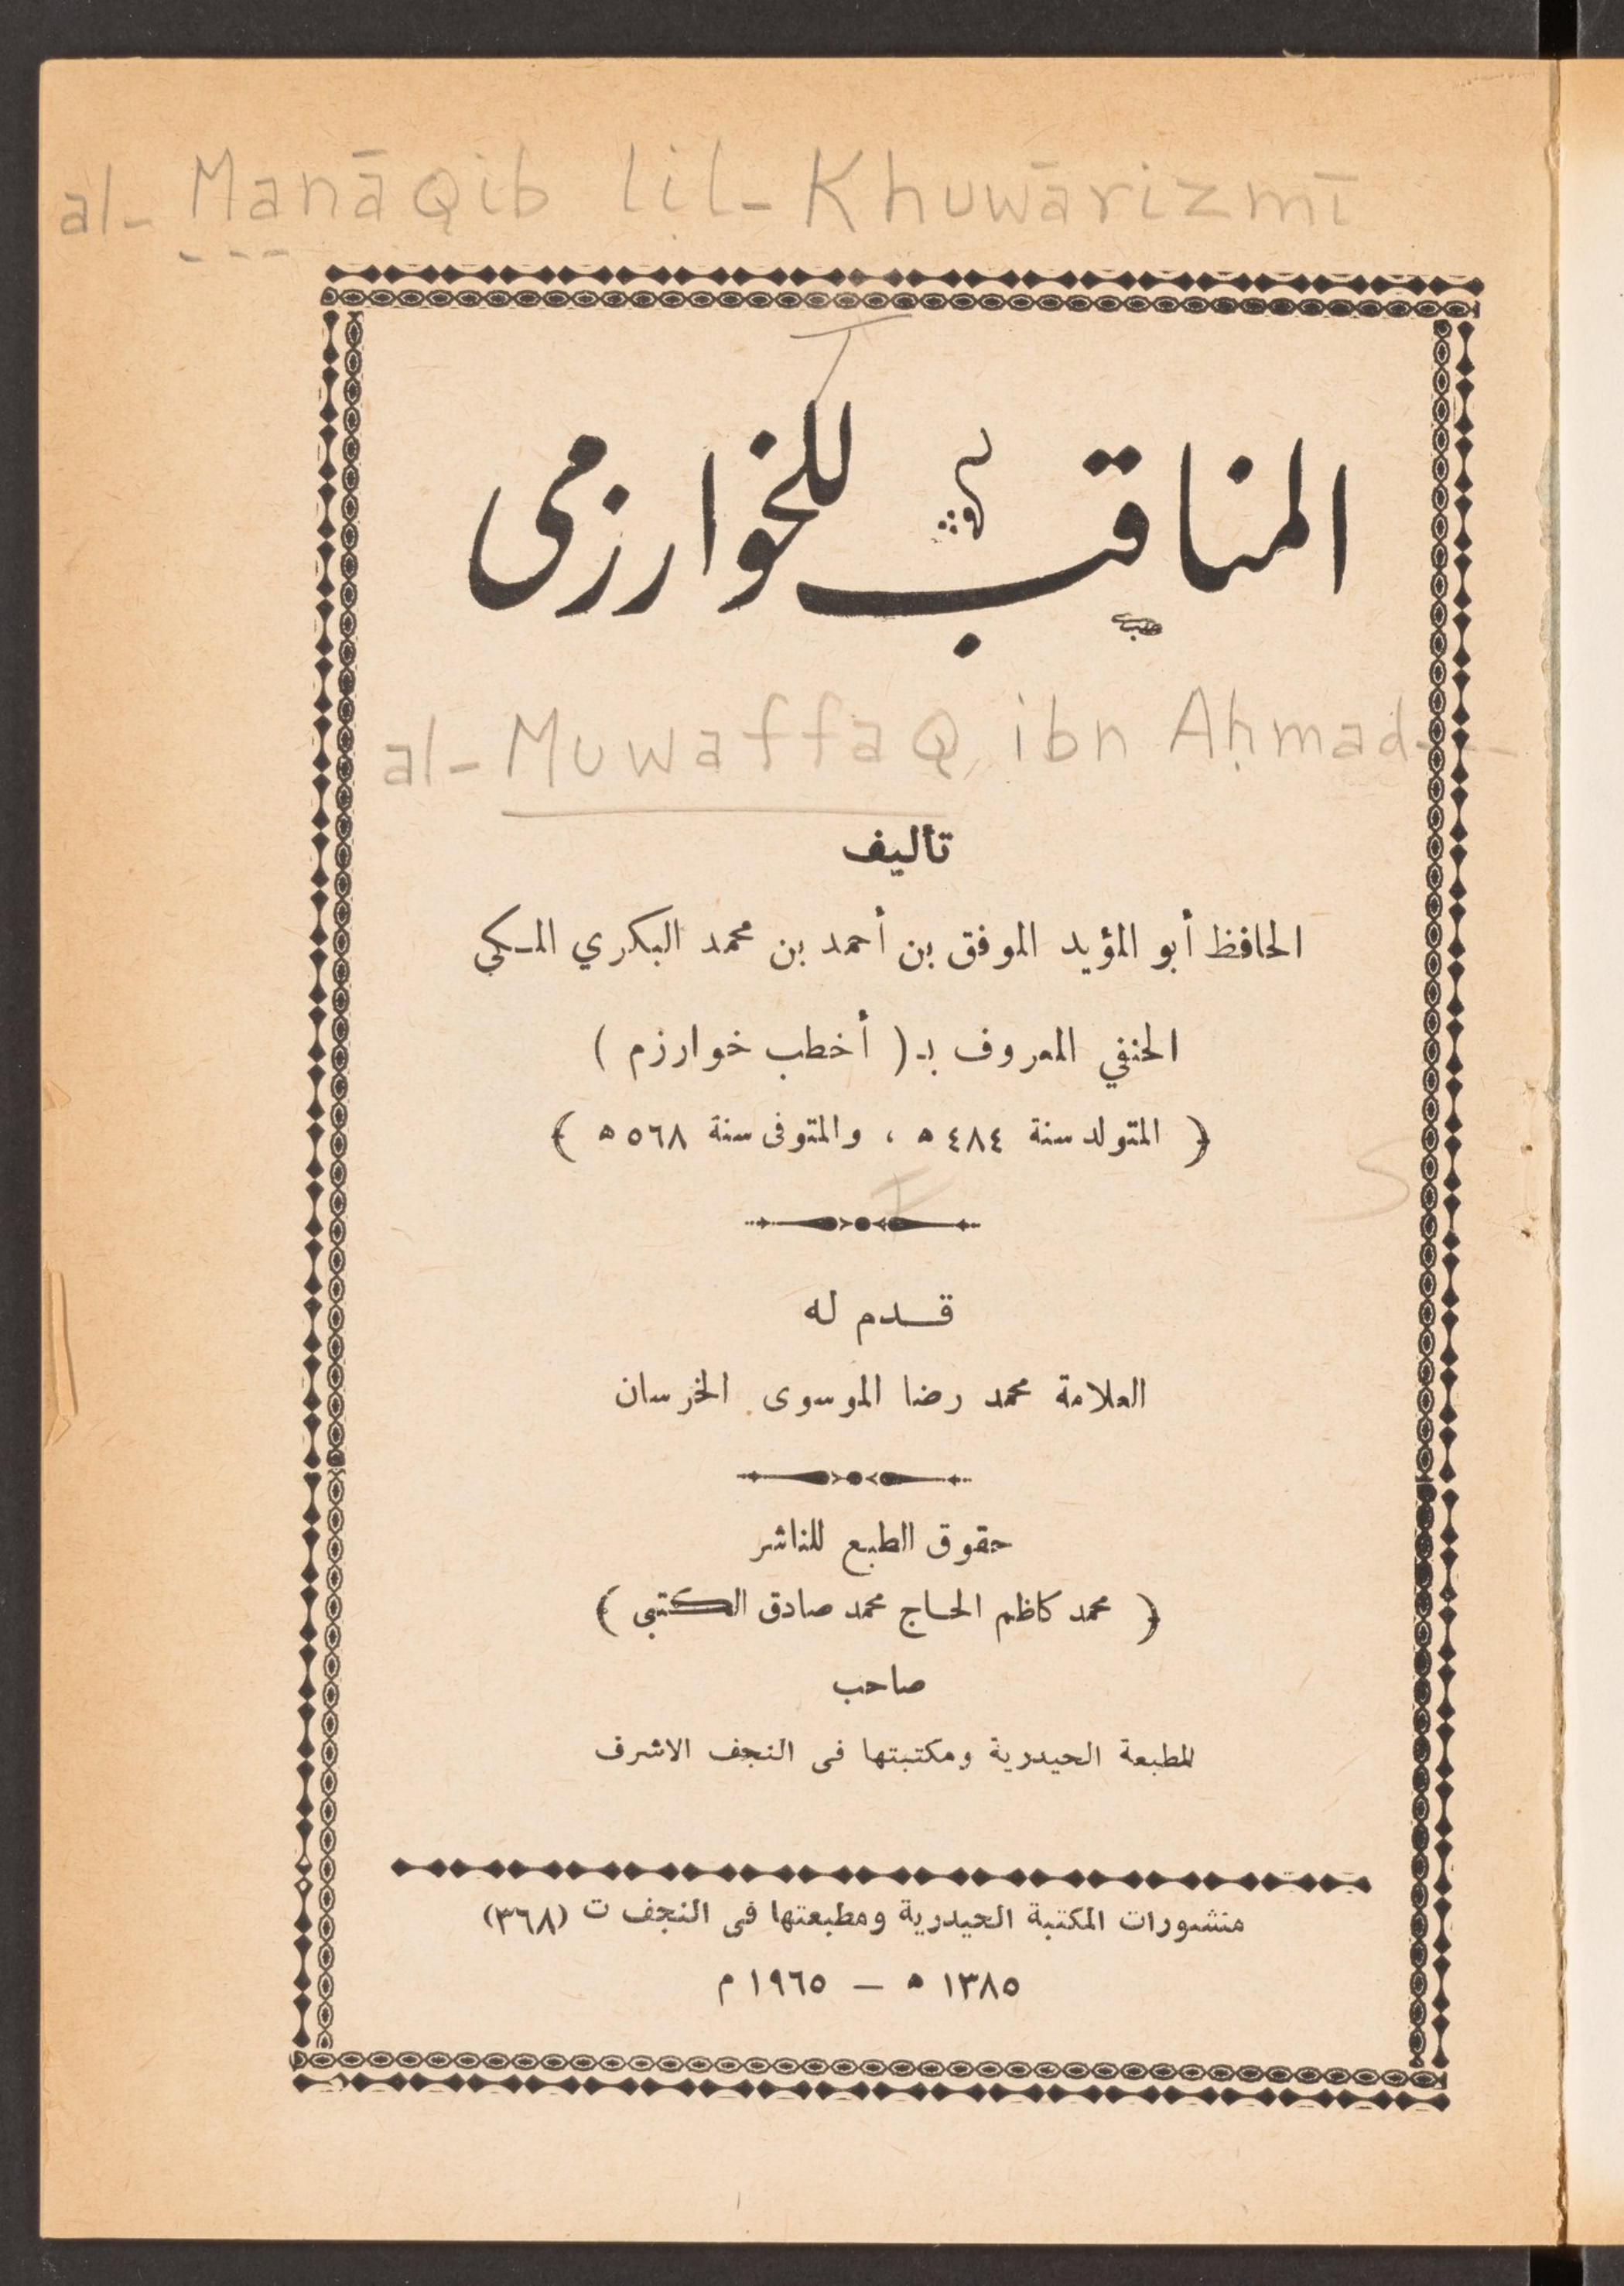 al-Manāqib lil-Khuwārizmī
المناقب للخوارزمى
al-Muwaffaq, ibn Aḥmad---
تأليف
الحافظ أبو المؤيد الموفق بن أحمد بن محمد البكري المـكي
الحنفي المعروف بـ ( أخطب خوارزم )
﴿ المتولد سنة ٤٨٤ ه ، والمتوفى سنة ٥٦٨ ه ﴾
قـدم له
العلامة محمد رضا الموسوى الخرسان
حقوق الطبع للناشر
﴿ محمد كاظم الحاج محمد صادق الكتبى ﴾
صاحب
المطبعة الحيدرية ومكتبتها فى النجف الاشرف
منشورات المكتبة الحيدرية ومطبعتها فى النجف ت (٣٦٨)
١٣٨٥ ه – ١٩٦٥ م